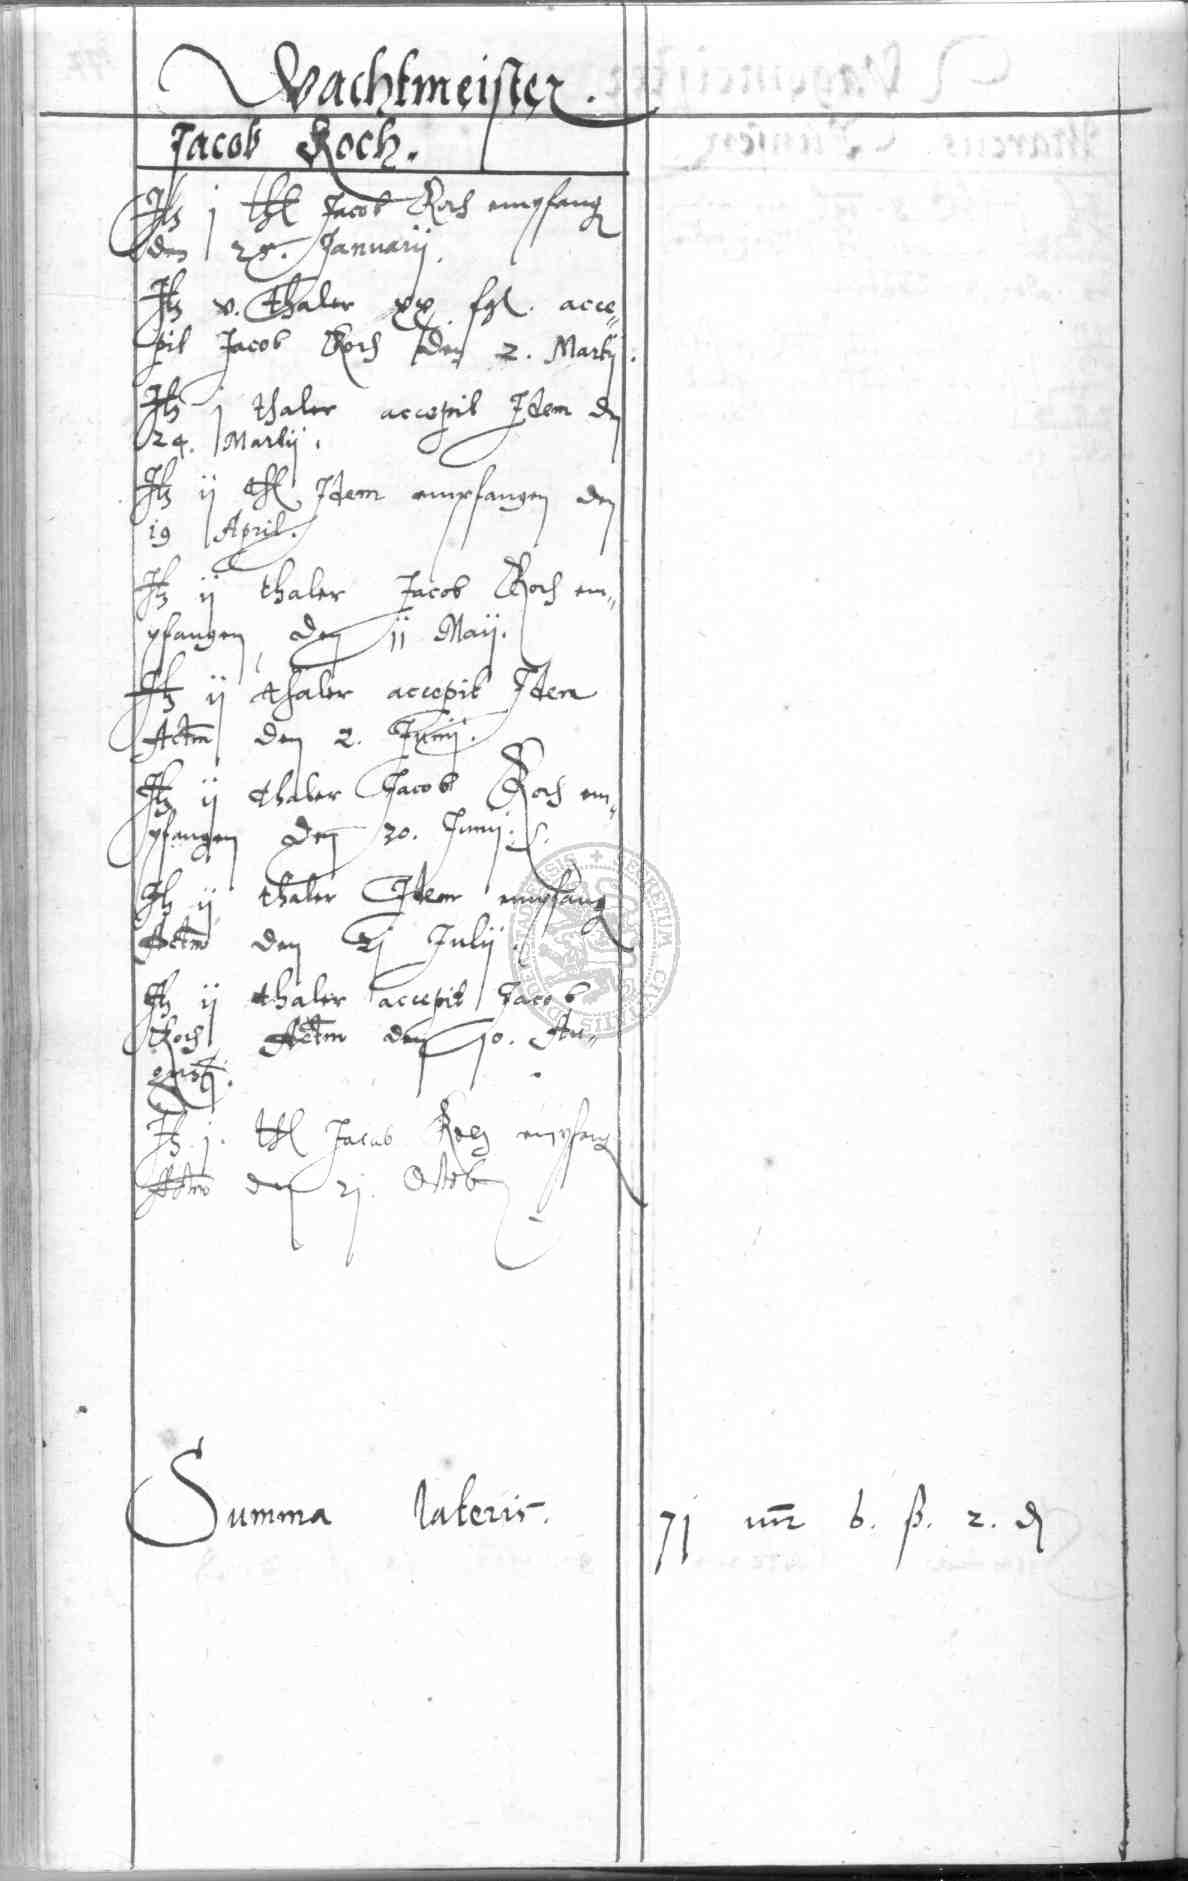 Wachtmeister.
Jacob Koch.
Itz j thl Jacob Koch empfang
den 25. Januarij.
Itz v. thaler xx fgl. acce„
pit Jacob Koch den 2. Martij.
Itz j thaler accepit Idem den
24. Martij.
Itz ij thl Idem empfangen den
19 April.
Itz ij thaler Jacob Koch em„
pfangen den 11 Maij.
Itz ij thaler accepit Idem
Actm den 2. Junij.
Itz ij thaler Jacob Koch em„
pfangen den 30. Junij.
Itz ij thaler Idem empfang
Actm den 21 Julij.
Itz ij thaler accepit Jacob
Koch Actm den 10. Au„
gustj.
Itz j. thl Jacob Koch empfang
Actm den 21. Octob
Summa lateris. 71 mr 6. ß. 2. d
SECRETUM CIVITATIS